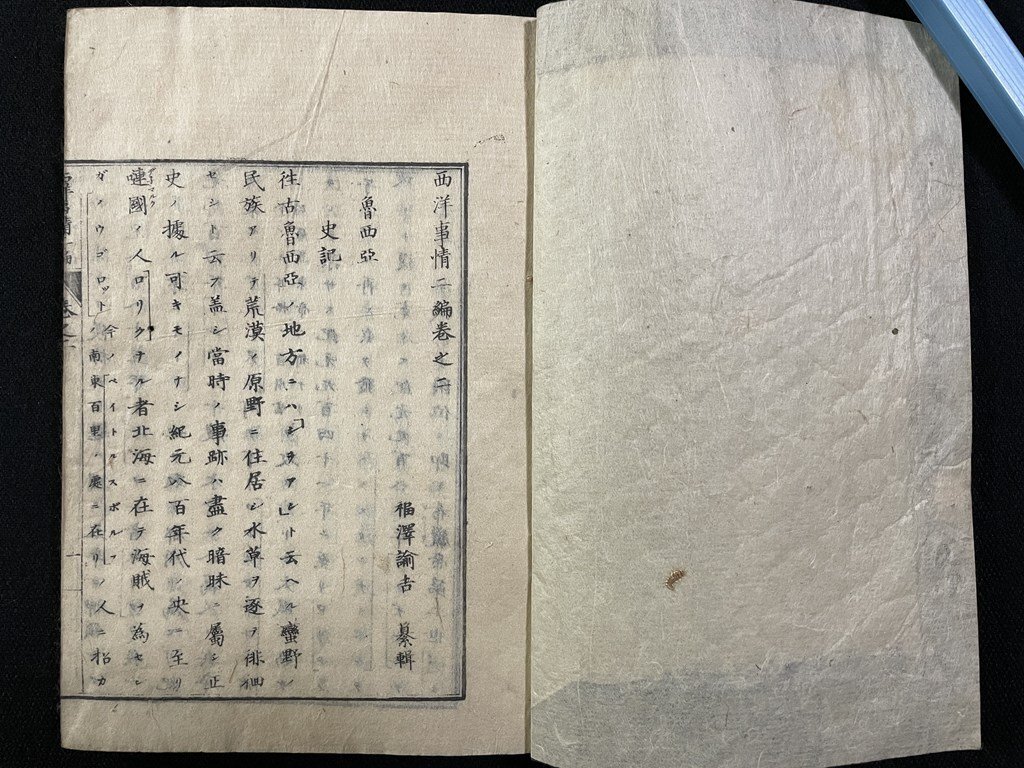 西洋事情二編卷之二
福澤諭吉 纂輯
魯西亞
史記
往古魯西亞ノ地方ニハ「シヲアン」ト云ヘル蠻野ノ
民族アリテ荒漠ノ原野ニ住居シ水草ヲ逐テ徘徊
セシト云フ盖シ當時ノ事跡ハ盡ク暗昧ニ屬シ正
史ノ據ル可キモノナシ紀元八百年代ノ央ニ至リ
嗹國ノ人ロリクナル者北海ニ在テ海賊ヲ為セシ
ガノウゴロット今ノペイトルスボルフノ南東百里ノ處ニ在リノ人ニ招カ